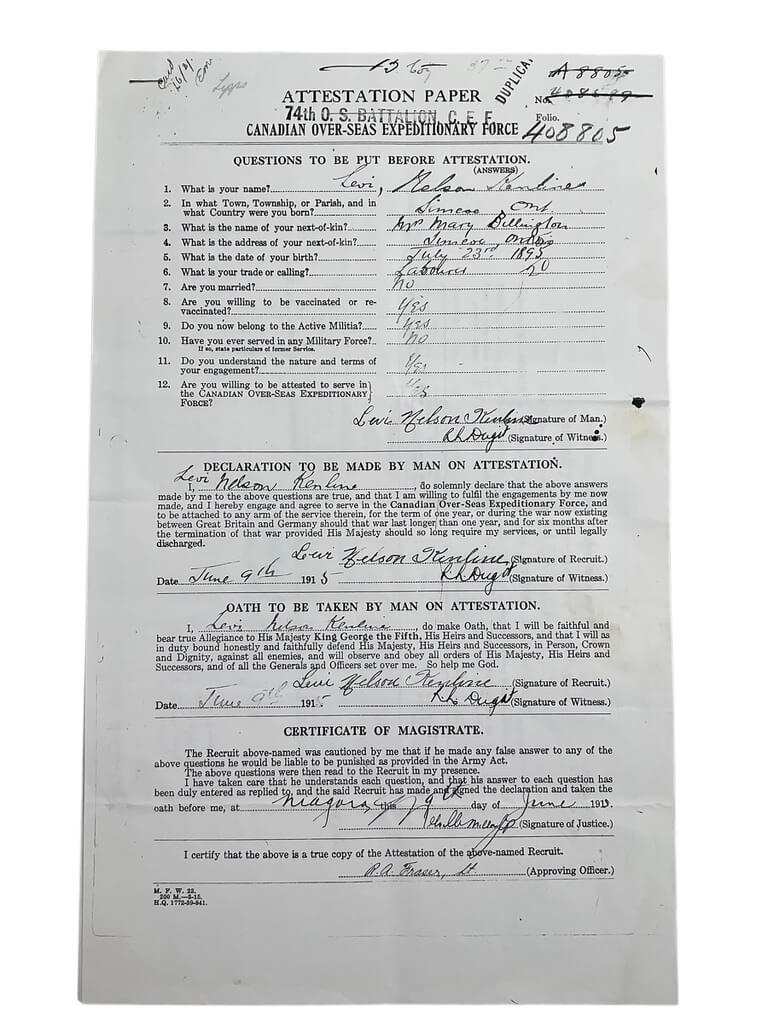 13 Coy
DUPLICA
A 8805
ATTESTATION PAPER
No. 408589
74th O. S. BATTALION, C. E. F.
Folio.
CANADIAN OVER-SEAS EXPEDITIONARY FORCE
408805
QUESTIONS TO BE PUT BEFORE ATTESTATION.
(ANSWERS)
1. What is your name? Levi, Nelson Kenline
2. In what Town, Township, or Parish, and in
what Country were you born? Simcoe, Ont.
3. What is the name of your next-of-kin? Mrs Mary Billington
4. What is the address of your next-of-kin? Simcoe, Ontario
5. What is the date of your birth? July 23rd 1895
6. What is your trade or calling? Labourer 20
7. Are you married? No
8. Are you willing to be vaccinated or re-
vaccinated? Yes
9. Do you now belong to the Active Militia? Yes
10. Have you ever served in any Military Force? No
If so, state particulars of former Service.
11. Do you understand the nature and terms of
your engagement? Yes
12. Are you willing to be attested to serve in
the CANADIAN OVER-SEAS EXPEDITIONARY
FORCE? Yes
Levi Nelson Kenline (Signature of Man.)
(Signature of Witness.)
DECLARATION TO BE MADE BY MAN ON ATTESTATION.
I, Levi Nelson Kenline, do solemnly declare that the above answers
made by me to the above questions are true, and that I am willing to fulfil the engagements by me now
made, and I hereby engage and agree to serve in the Canadian Over-Seas Expeditionary Force, and
to be attached to any arm of the service therein, for the term of one year, or during the war now existing
between Great Britain and Germany should that war last longer than one year, and for six months after
the termination of that war provided His Majesty should so long require my services, or until legally
discharged.
Levi Nelson Kenline (Signature of Recruit.)
Date June 9th 1915 (Signature of Witness.)
OATH TO BE TAKEN BY MAN ON ATTESTATION.
I, Levi Nelson Kenline, do make Oath, that I will be faithful and
bear true Allegiance to His Majesty King George the Fifth, His Heirs and Successors, and that I will as
in duty bound honestly and faithfully defend His Majesty, His Heirs and Successors, in Person, Crown
and Dignity, against all enemies, and will observe and obey all orders of His Majesty, His Heirs and
Successors, and of all the Generals and Officers set over me. So help me God.
Levi Nelson Kenline (Signature of Recruit.)
Date June 9th 1915 (Signature of Witness.)
CERTIFICATE OF MAGISTRATE.
The Recruit above-named was cautioned by me that if he made any false answer to any of the
above questions he would be liable to be punished as provided in the Army Act.
The above questions were then read to the Recruit in my presence.
I have taken care that he understands each question, and that his answer to each question has
been duly entered as replied to, and the said Recruit has made and signed the declaration and taken the
oath before me, at Niagara this 9th day of June 1915.
(Signature of Justice.)
I certify that the above is a true copy of the Attestation of the above-named Recruit.
R.A. Fraser, Lt. (Approving Officer.)
M. F. W. 23.
200 M.—3-15.
H.Q. 1772-39-841.